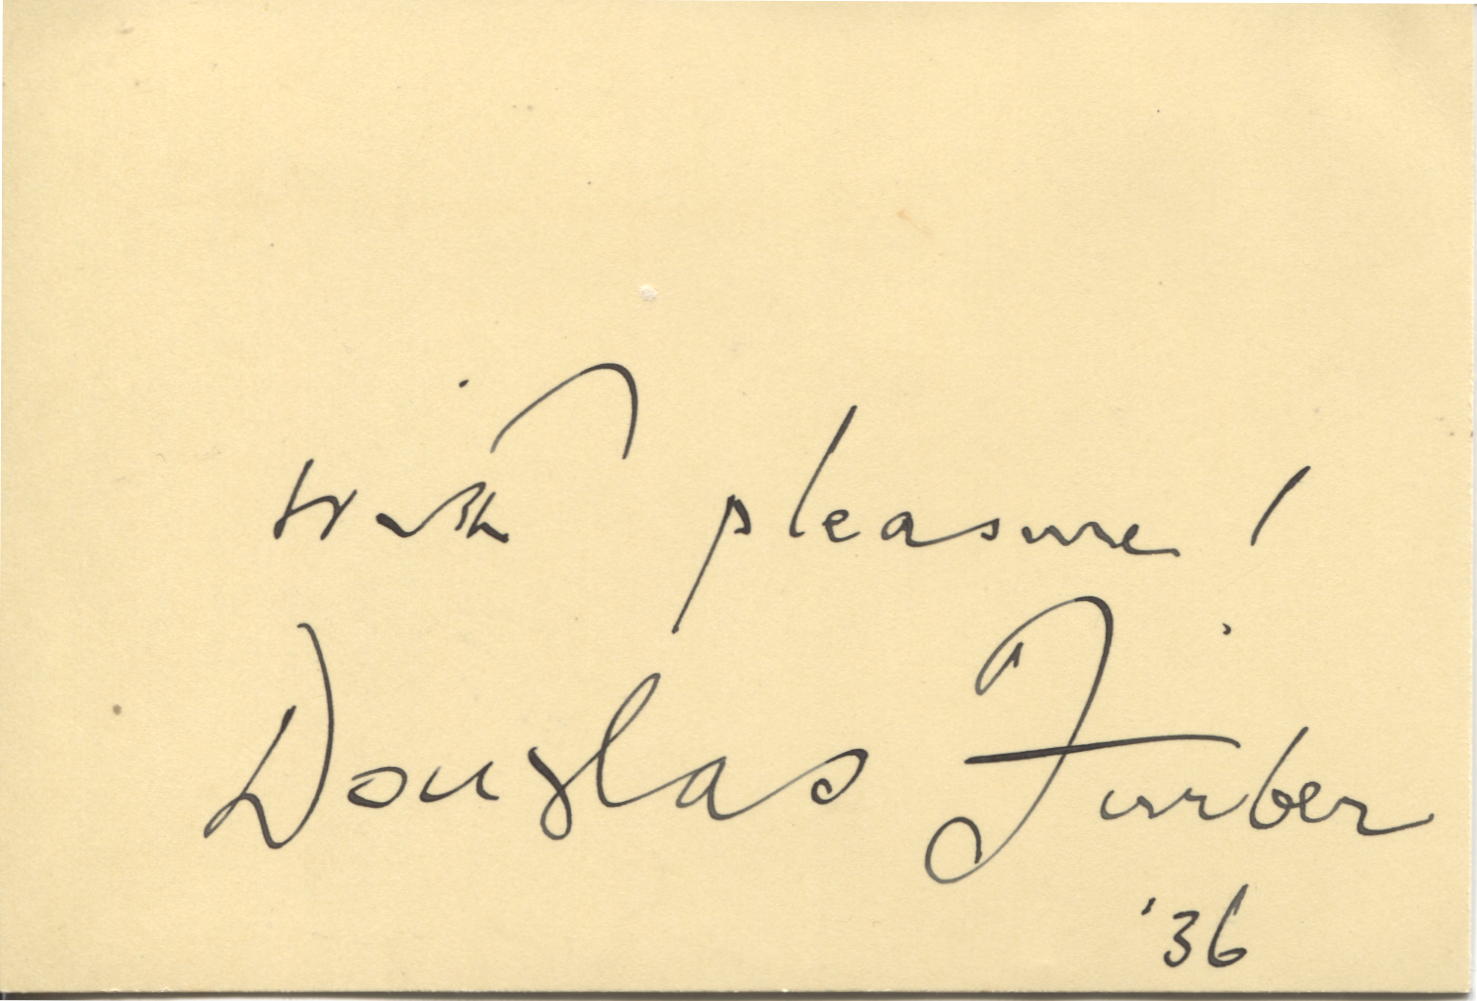 with pleasure!
Douglas Furber
'36